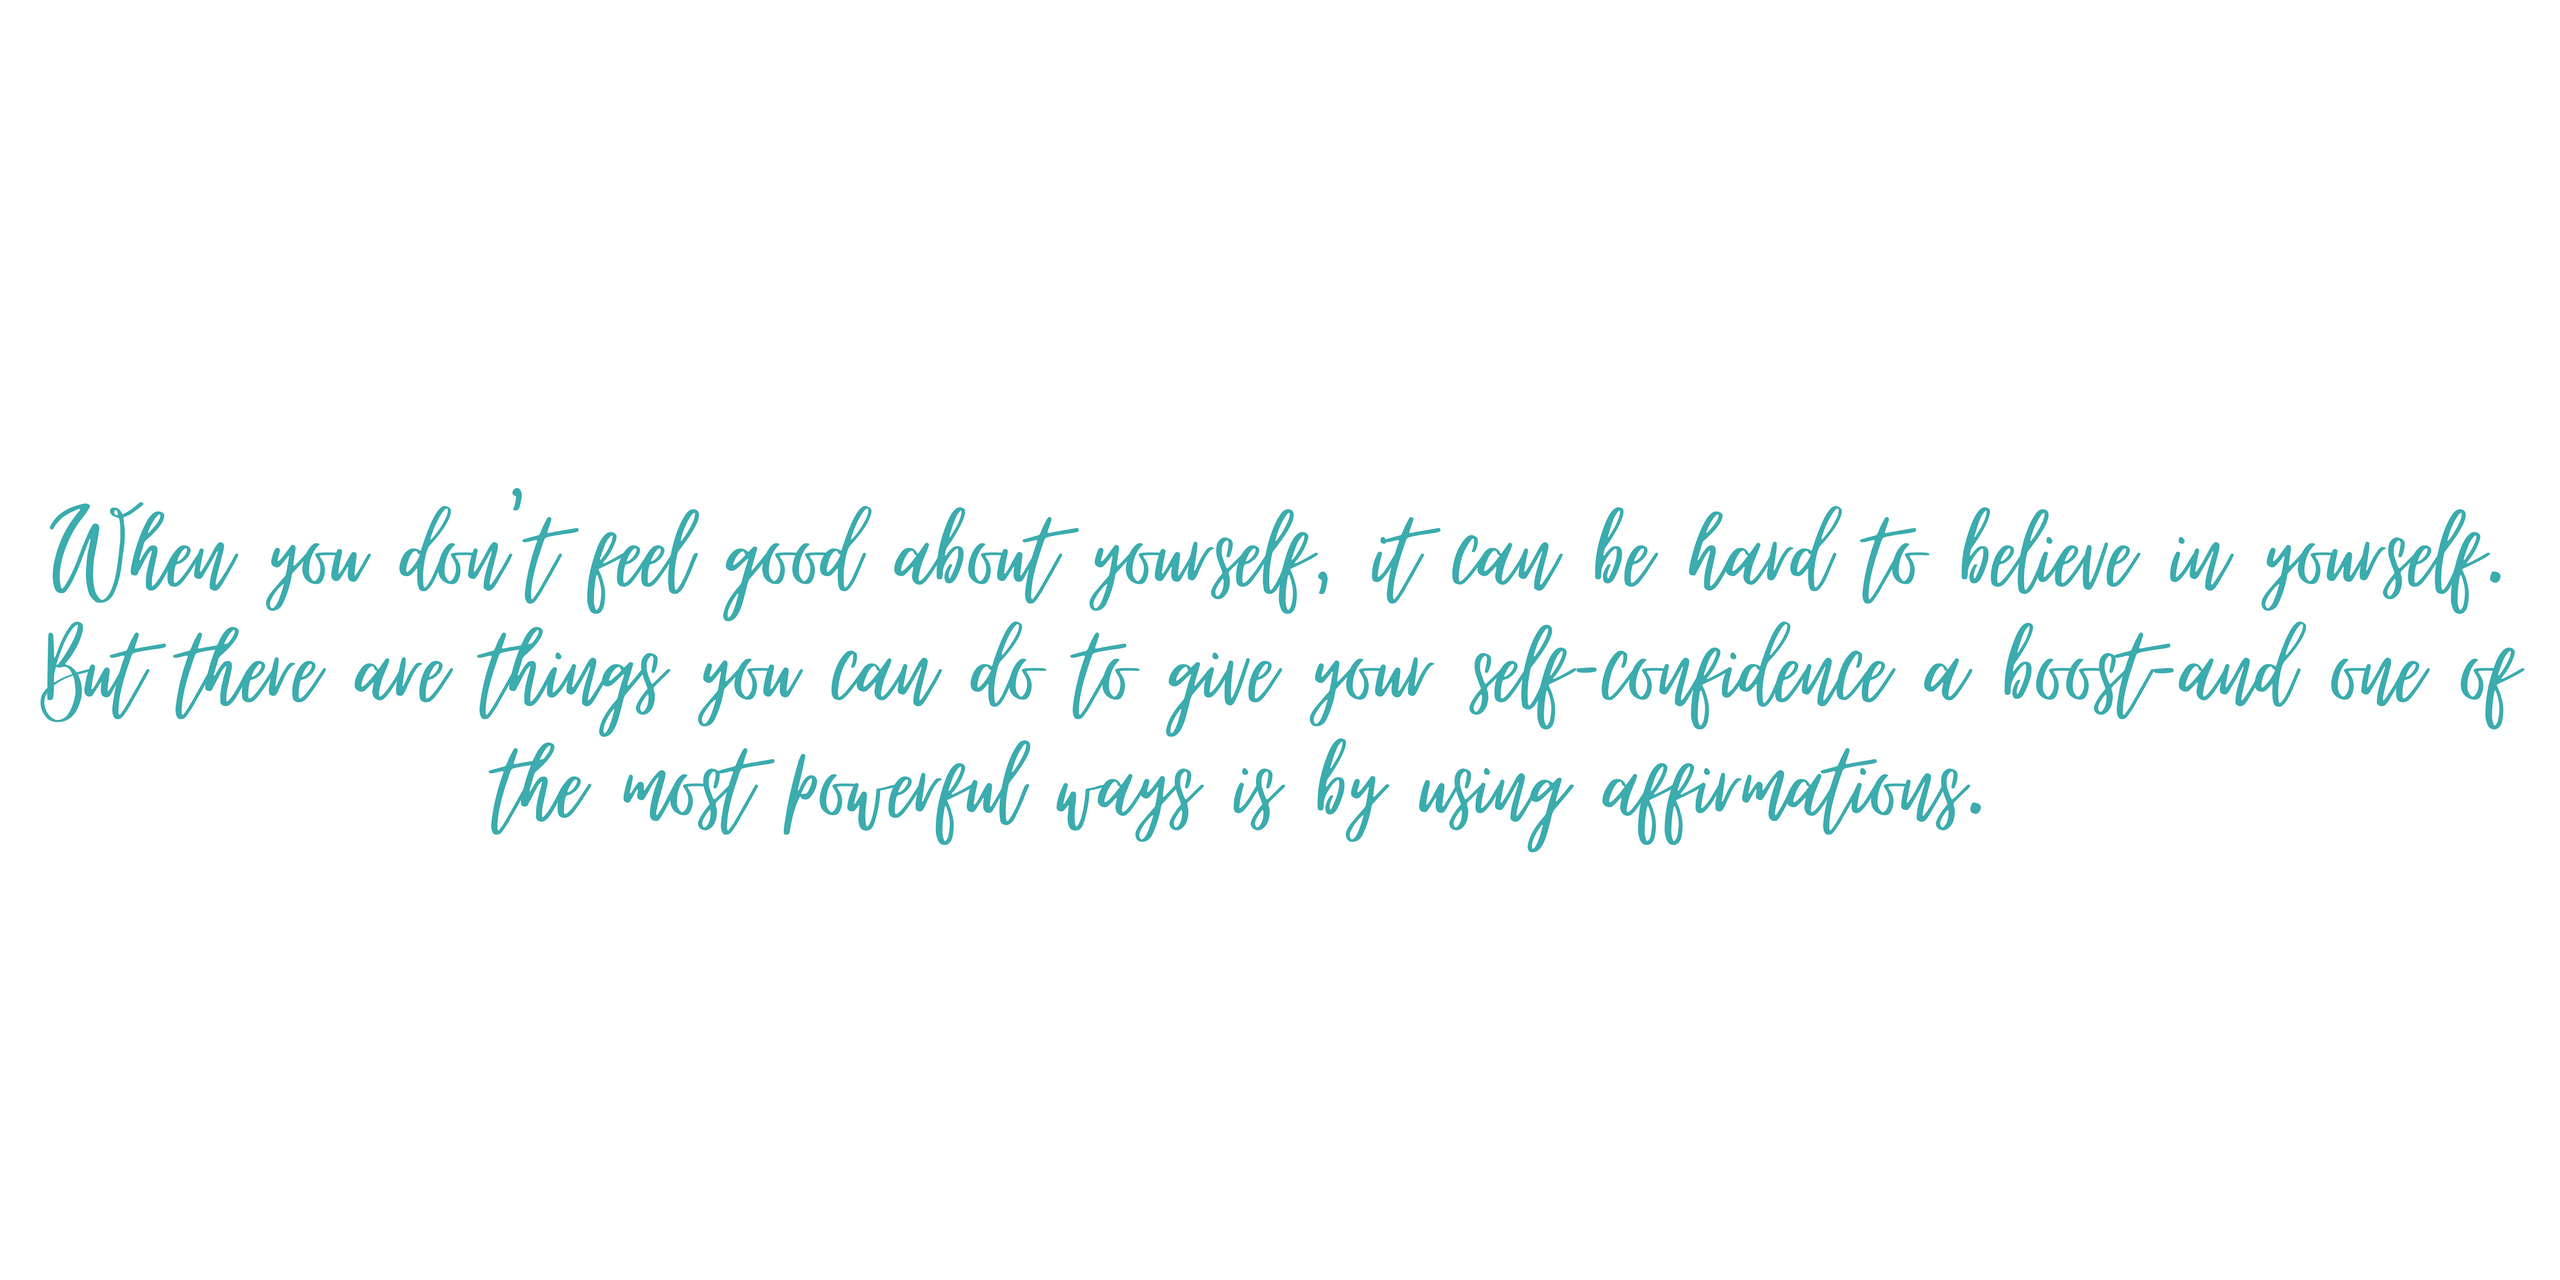 When you don't feel good about yourself, it can be hard to believe in yourself.
But there are things you can do to give your self-confidence a boost-and one of
the most powerful ways is by using affirmations.